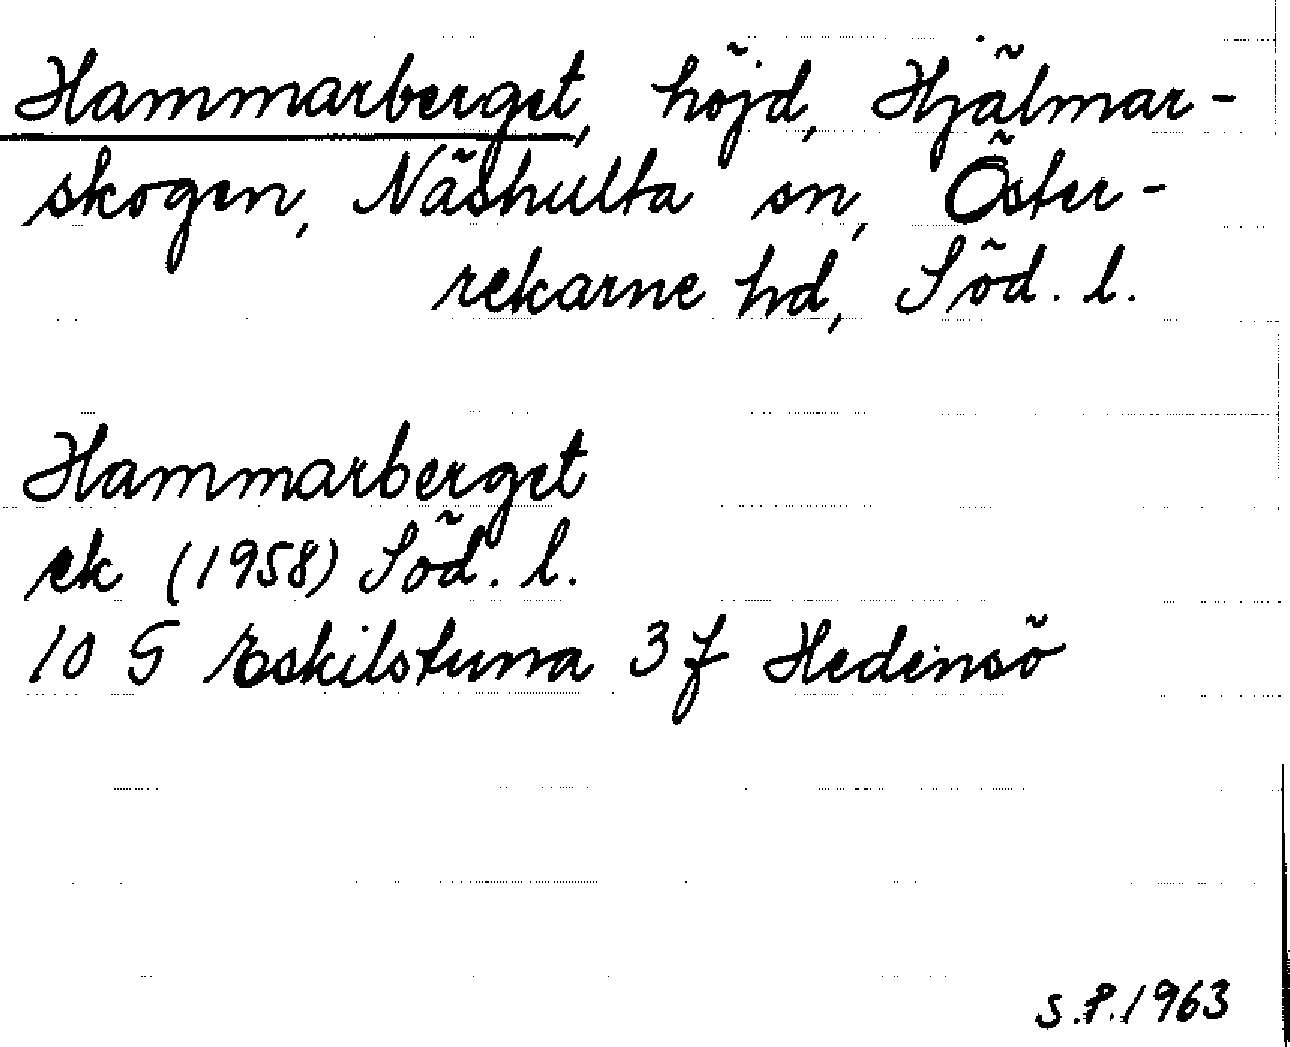 Hammarberget, höjd, Hjälmar-
skogen, Näshulta sn, Öster-
rekarne hd, Söd. l.
Hammarberget
ek (1958) Söd. l.
10 G Eskilstuna 3 f Hedensö
S.P. 1963